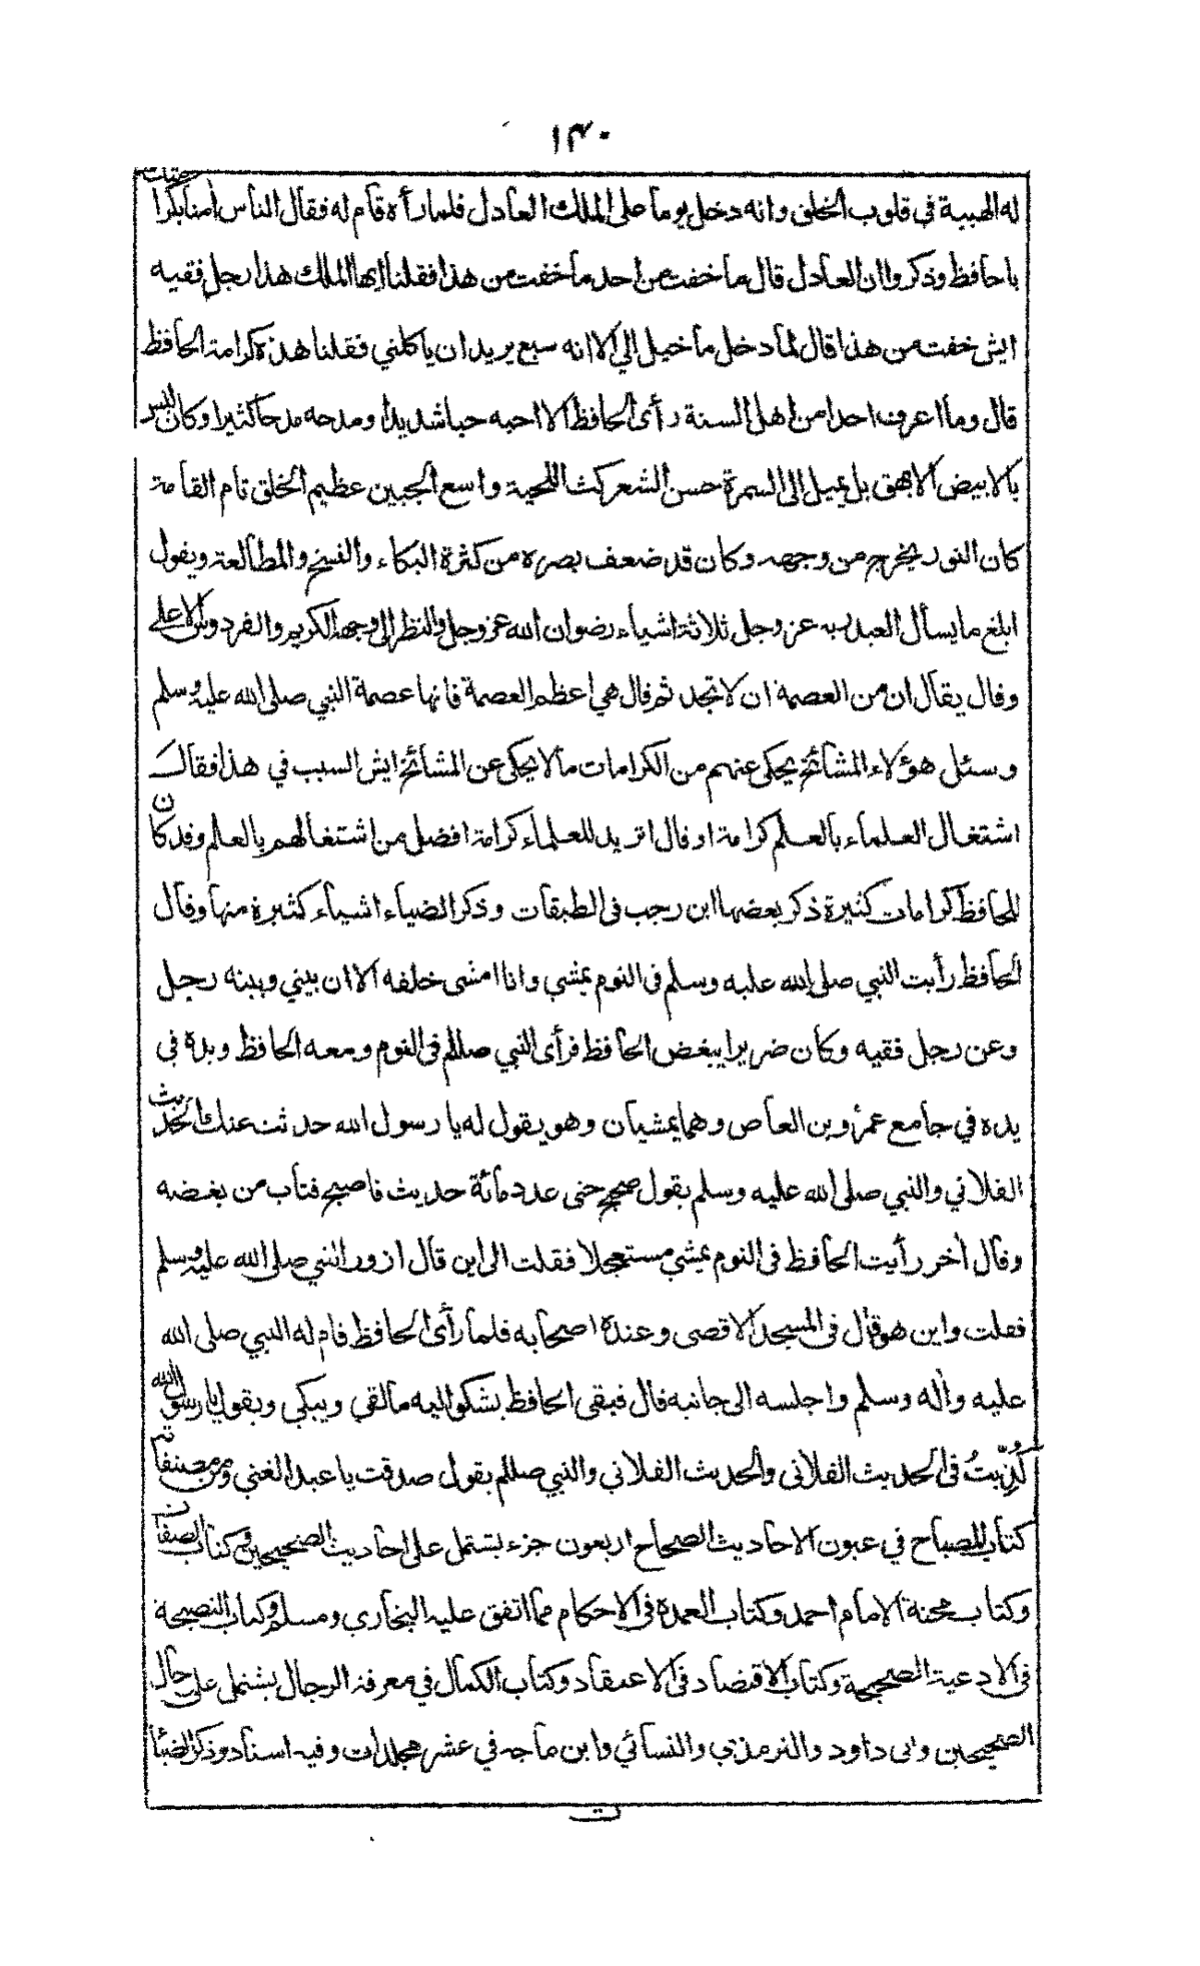 ١٣٠
له الهيبة في قلوب الخلق وانه دخل يوما على الملك العادل فلما رأه قام له فقال الناس امنا بكراماتك
يا حافظ وذكروا ان العادل قال ما خفت من احد ما خفت من هذا فقلنا ايها الملك هذا رجل فقيه
ايش خفت من هذا قال لما دخل ما خيل الي الا انه سبع يريد ان ياكلني فقلنا هذه كرامة الحافظ
قال وما اعرف احدا من اهل السنة رأى الحافظ الا احبه حبا شديدا ومدحه مدحا كثيرا وكان ليس
بالابيض الامهق بل يميل الى السمرة حسن الشعر كث اللحية واسع الجبين عظيم الخلق تام القامة
كان النور يخرج من وجهه وكان قد ضعف بصره من كثرة البكاء والنسخ والمطالعة ويقول
ابلغ ما يسأل العبد ربه عز وجل ثلاثة اشياء رضوان الله عز وجل والنظر الى وجهه الكريم والفردوس الاعلى
وقال يقال ان من العصمة ان لا تجد ثم قال هي اعظم العصمة فانها عصمة النبي صلى الله عليه وسلم
وسئل هؤلاء المشائخ يحكى عنهم من الكرامات ما لا يحكى عن المشائخ ايش السبب في هذا فقال
اشتغال العلماء بالعلم كرامة او قال اتريد للعلماء كرامة افضل من اشتغالهم بالعلم وقد كان
للحافظ كرامات كثيرة ذكر بعضها ابن رجب في الطبقات وذكر الضياء اشياء كثيرة منها وقال
الحافظ رأيت النبي صلى الله عليه وسلم في النوم يمشي وانا امشى خلفه الا ان بيني وبينه رجل
وعن رجل فقيه وكان ضريرا يبغض الحافظ فرأى النبي صللم في النوم ومعه الحافظ ويده في
يده في جامع عمرو بن العاص وهما يمشيان وهو يقول له يا رسول الله حدثت عنك الحديث
الفلاني والنبي صلى الله عليه وسلم يقول صحيح حتى عدد مائة حديث فاصبح فتاب من بغضه
وقال آخر رأيت الحافظ في النوم يمشي مستعجلا فقلت الى اين قال ازور النبي صلى الله عليه وسلم
فقلت واين هو قال في المسجد الاقصى وعنده اصحابه فلما رأى الحافظ قام له النبي صلى الله
عليه وآله وسلم واجلسه الى جانبه قال فبقى الحافظ يشكو اليه ما لقي ويبكي ويقول يا رسول الله
كُذِّبتُ في الحديث الفلانى والحديث الفلاني والنبي صللم يقول صدقت يا عبد الغني ومن مصنفاته
كتاب المصباح في عيون الاحاديث الصحاح اربعون جزء يشتمل على احاديث الصحيحين وكتاب الصفات
وكتاب محنة الامام احمد وكتاب العمدة في الاحكام مما اتفق عليه البخاري ومسلم وكتاب النصيحة
في الادعية الصحيحة وكتاب الاقتصاد في الاعتقاد وكتاب الكمال في معرفة الرجال يشتمل على رجال
الصحيحين وابى داود والترمذي والنسائي وابن ماجه في عشر مجلدات وفيه اسناد وذكر الضياء
ت